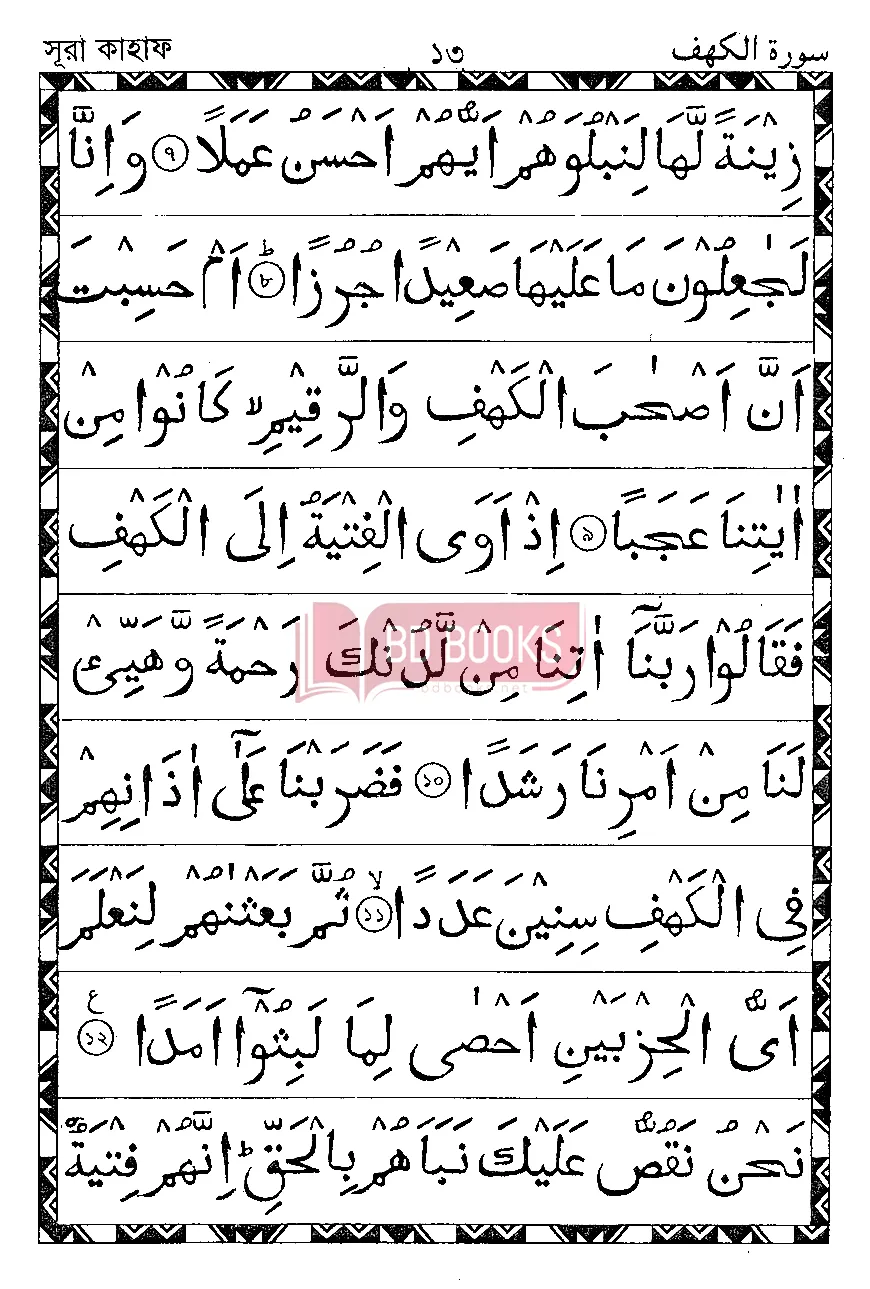 সূরা কাহাফ ১৩ سورة الكهف
زِيْنَةً لَّهَا لِنَبْلُوَهُمْ اَيُّهُمْ اَحْسَنُ عَمَلًا ﴿٧﴾ وَاِنَّا
لَجٰعِلُوْنَ مَا عَلَيْهَا صَعِيْدًا جُرُزًا ؕ﴿٨﴾ اَمْ حَسِبْتَ
اَنَّ اَصْحٰبَ الْكَهْفِ وَالرَّقِيْمِ ۙ كَانُوْا مِنْ
اٰيٰتِنَا عَجَبًا ﴿৯﴾ اِذْ اَوَى الْفِتْيَةُ اِلَى الْكَهْفِ
فَقَالُوْا رَبَّنَاۤ اٰتِنَا مِنْ لَّدُنْكَ رَحْمَةً وَّهَيِّئْ
BD BOOKS
لَنَا مِنْ اَمْرِنَا رَشَدًا ﴿১০﴾ فَضَرَبْنَا عَلٰۤى اٰذَانِهِمْ
فِى الْكَهْفِ سِنِيْنَ عَدَدًا ۙ﴿১১﴾ ثُمَّ بَعَثْنٰهُمْ لِنَعْلَمَ
اَىُّ الْحِزْبَيْنِ اَحْصٰى لِمَا لَبِثُوْۤا اَمَدًا ﴿১২﴾ ع
نَحْنُ نَقُصُّ عَلَيْكَ نَبَاَهُمْ بِالْحَقِّ ؕ اِنَّهُمْ فِتْيَةٌ